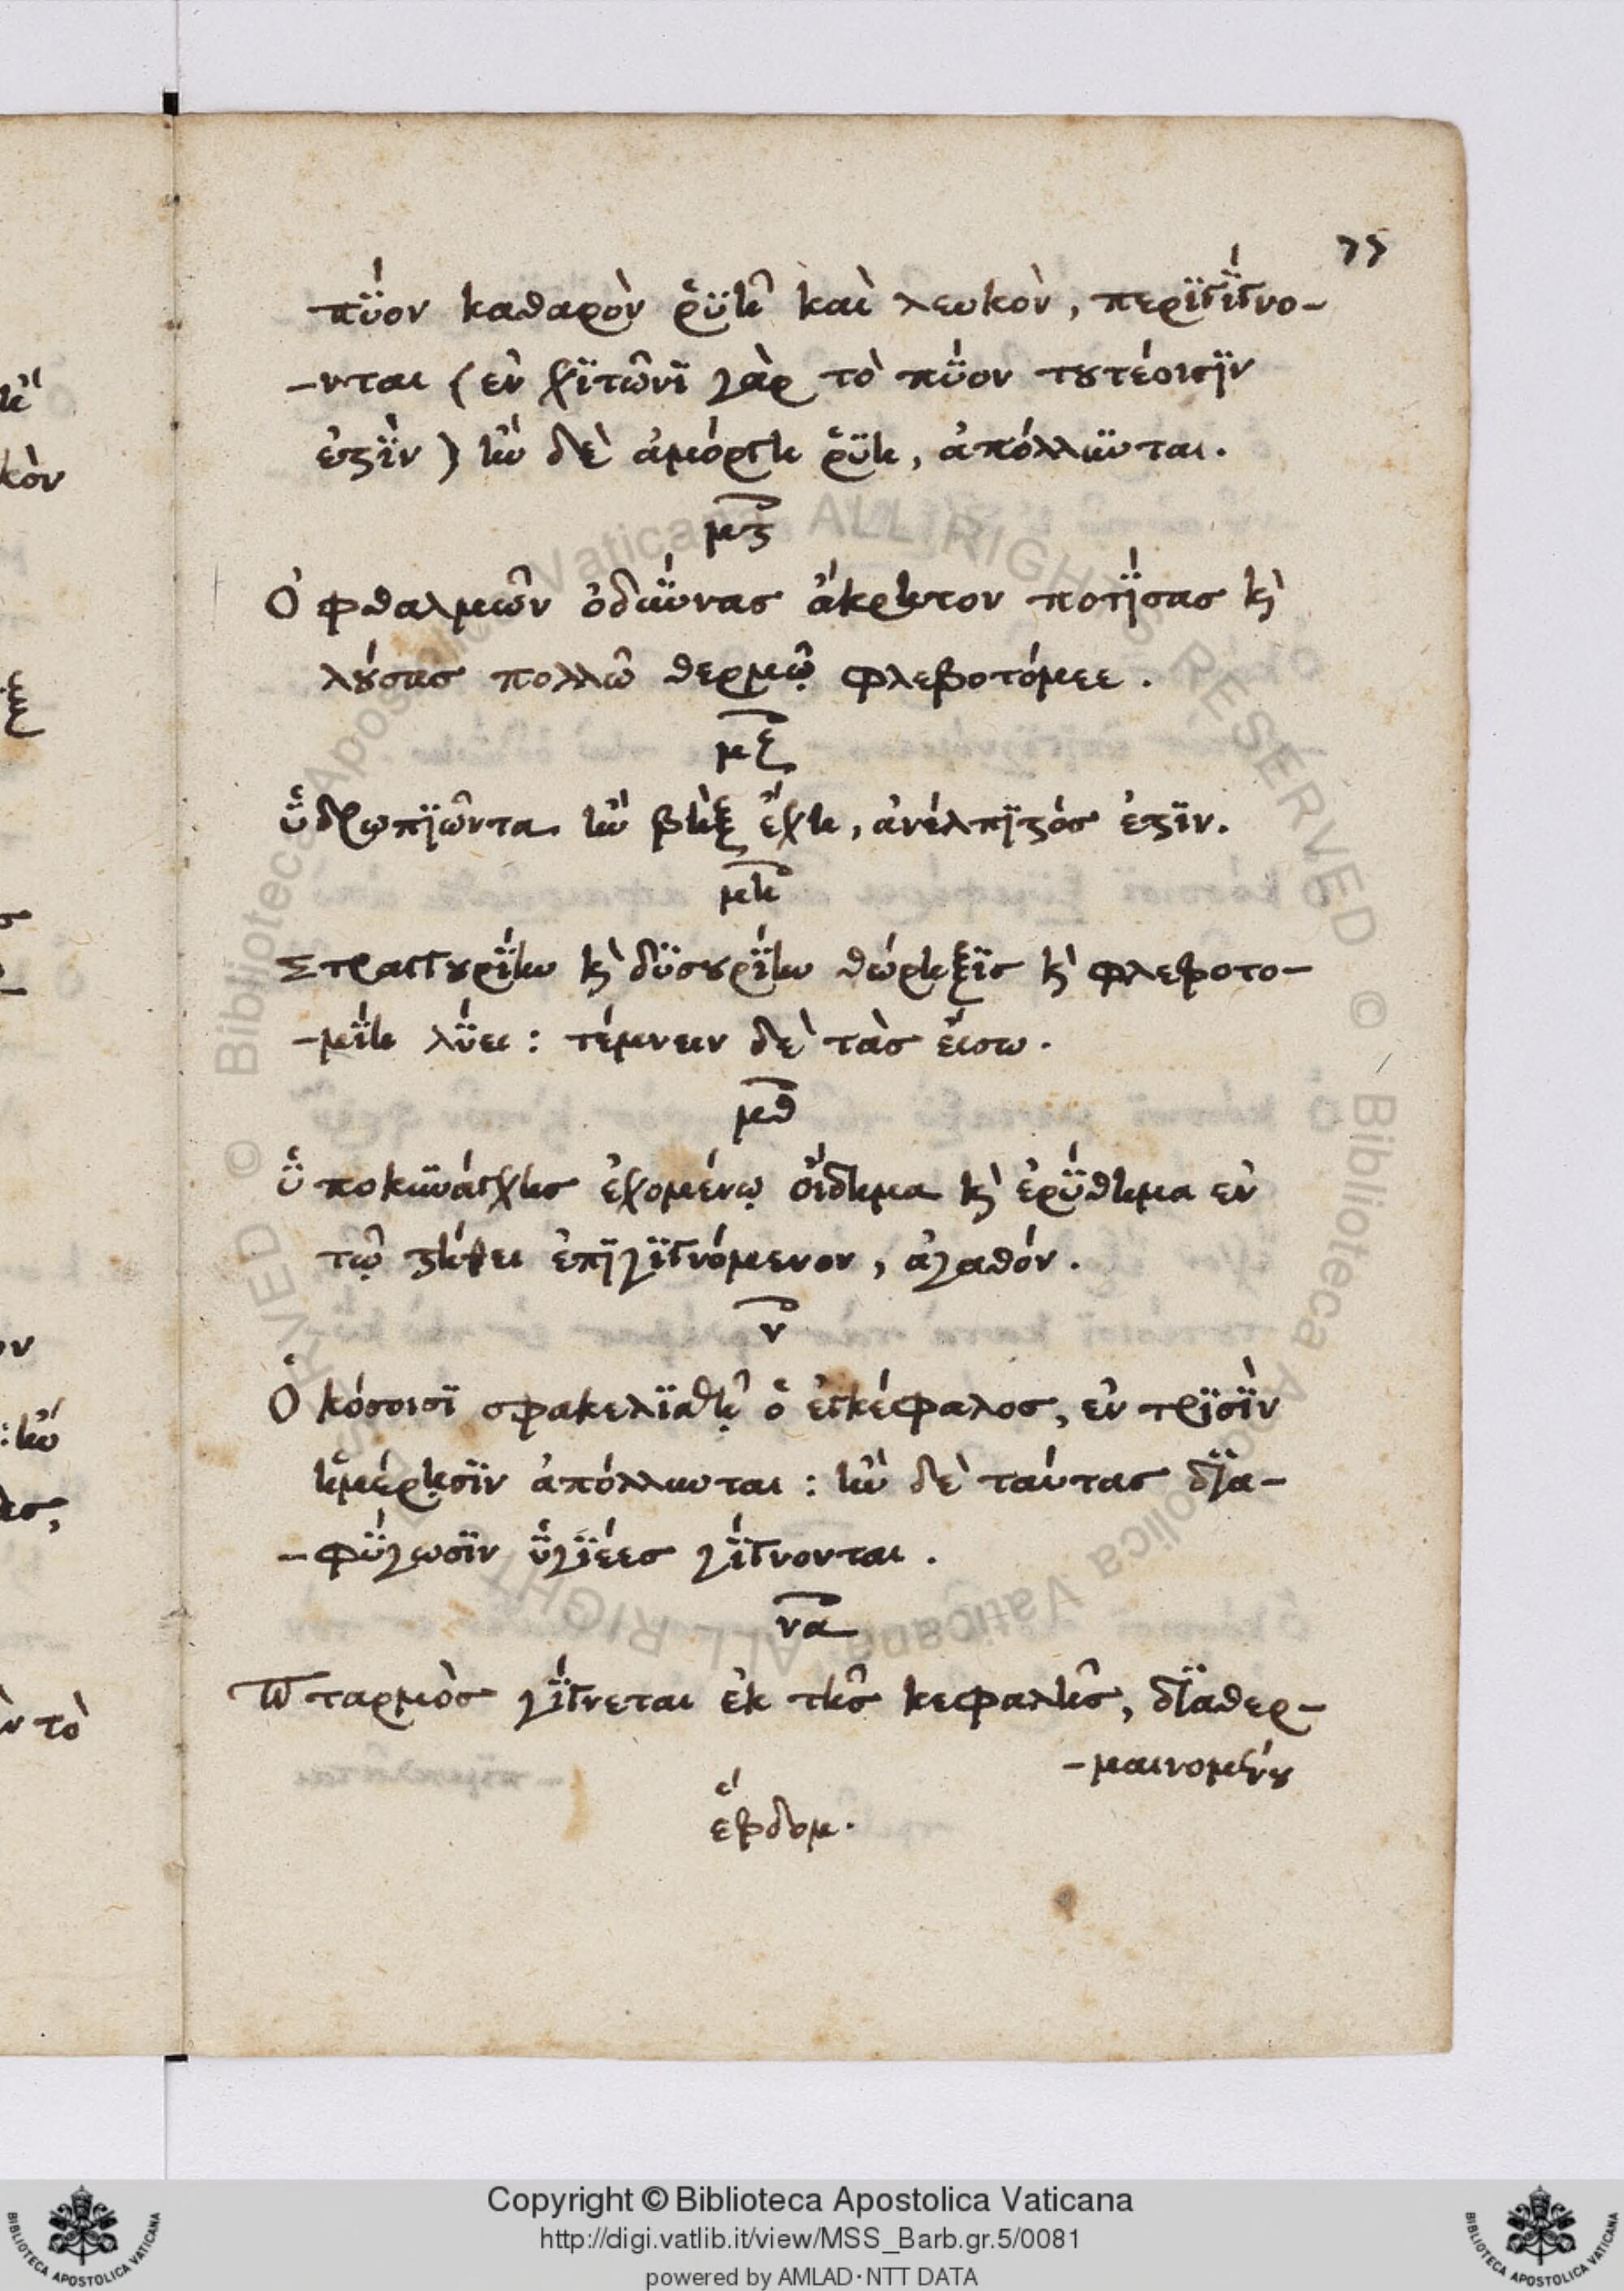 75
πΰον καθαρὸν ῥϋῆ καὶ λευκὸν, περϊγίγνο-
-νται (ἐν χϊτῶνϊ γὰρ τὸ πΰον τουτέοισϊν
ἐστὶν) ἢν δὲ ἀμόργη ῥϋῇ, ἀπόλλϋνται.
μϛ
Ὀφθαλμῶν ὀδύνας ἄκρητον ποτΐσας κὶ
λούσας πολλῶ θερμῷ φλεβοτόμεε.
μζ
ὑδρωπϊῶντα ἢν βὴξ ἔχη, ἀνέλπϊστός ἐστϊν.
μη
Στραγγουρΐην κὶ δϋσουρΐην θώρηξϊς κὶ φλεβοτο-
-μΐη λΰει: τέμνειν δὲ τὰς εἴσω.
μθ
ὑποκϋνάγχης ἐχομένῳ οἴδημα κὶ ἐρΰθημα ἐν
τῷ στήθει ἐπϊγϊγνόμενον, ἀγαθόν.
ν
Ὁκόσοισϊ σφακελϊσθῇ ὁ ἐγκέφαλος, ἐν τρϊσὶν
ἡμέρῃσϊν ἀπόλλυνται: ἢν δὲ ταύτας δϊα-
-φΰγωσϊν ὑγϊέες γΐγνονται.
να
Πταρμὸς γΐγνεται ἐκ τῆς κεφαλῆς, δϊαθερ-
-μαινομένου
ἕβδομ.
Copyright © Biblioteca Apostolica Vaticana
http://digi.vatlib.it/view/MSS_Barb.gr.5/0081
powered by AMLAD·NTT DATA